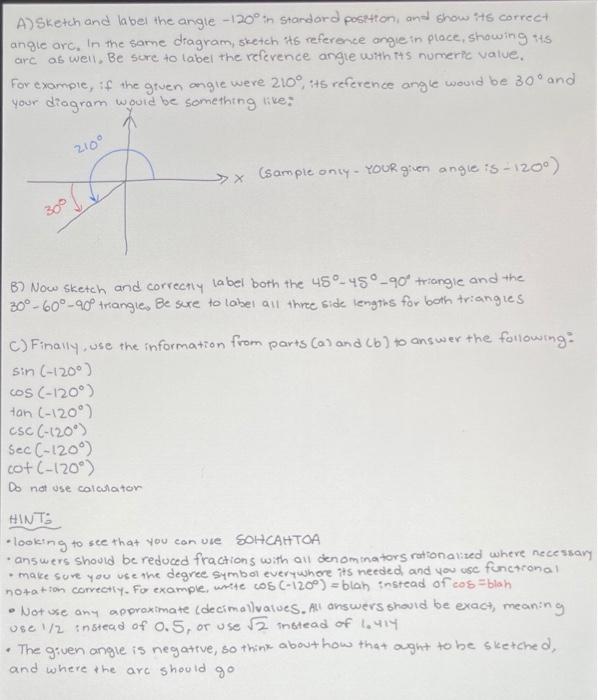 A) Sketch and label the angle -120° in standard position, and show its correct
angle arc. In the same diagram, sketch its reference angle in place, showing its
arc as well. Be sure to label the reference angle with its numeric value.
For example, if the given angle were 210°, its reference angle would be 30° and
your diagram would be something like:
y
210°
x (sample only - YOUR given angle is -120°)
30°
B) Now sketch and correctly label both the 45°-45°-90° triangle and the
30°-60°-90° triangle. Be sure to label all three side lengths for both triangles
C) Finally, use the information from parts (a) and (b) to answer the following:
sin (-120°)
cos (-120°)
tan (-120°)
csc (-120°)
sec (-120°)
cot (-120°)
Do not use calculator
HINT:
• looking to see that you can use SOHCAHTOA
• answers should be reduced fractions with all denominators rationalized where necessary
• make sure you use the degree symbol everywhere its needed, and you use functional
notation correctly. For example, write cos (-120°) = blah instead of cos = blah
• Not use any approximate (decimal) values. All answers should be exact, meaning
use 1/2 instead of 0.5, or use √2 instead of 1.414
• The given angle is negative, so think about how that ought to be sketched,
and where the arc should go